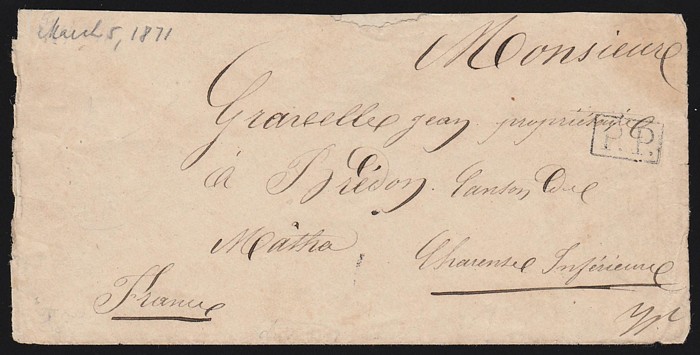 March 5, 1871
Monsieur
Gravelle jean propriétaire
P.P.
à Brédon Canton de
Matha Charente Inférieure
France